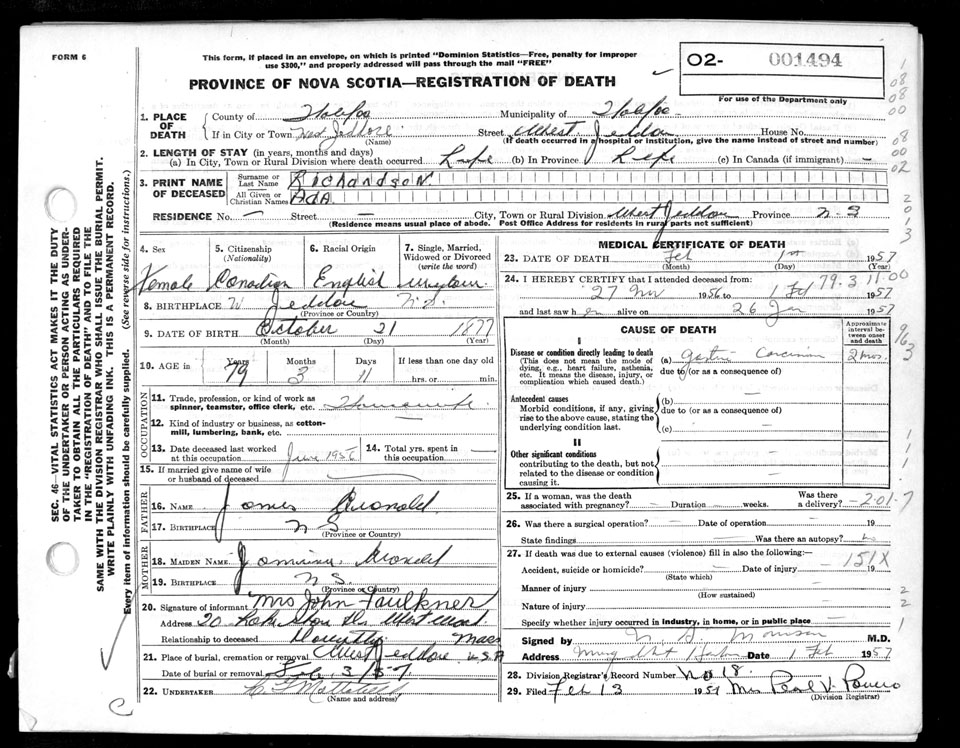 FORM 6
This form, if placed in an envelope, on which is printed "Dominion Statistics—Free, penalty for improper
use $300," and properly addressed will pass through the mail "FREE"
PROVINCE OF NOVA SCOTIA—REGISTRATION OF DEATH
O2- 001494
For use of the Department only
SEC. 46—VITAL STATISTICS ACT MAKES IT THE DUTY
OF THE UNDERTAKER OR PERSON ACTING AS UNDER-
TAKER TO OBTAIN ALL THE PARTICULARS REQUIRED
IN THE "REGISTRATION OF DEATH" AND TO FILE THE
SAME WITH THE DIVISION REGISTRAR WHO SHALL ISSUE THE BURIAL PERMIT.
WRITE PLAINLY WITH UNFADING INK. THIS IS A PERMANENT RECORD.
Every item of information should be carefully supplied. (See reverse side for instructions.)
1. PLACE OF DEATH
County of Municipality of
If in City or Town West Jeddore Street West Jeddore House No.
(Name) (If death occurred in a hospital or institution, give the name instead of street and number)
2. LENGTH OF STAY (in years, months and days)
(a) In City, Town or Rural Division where death occurred Life (b) In Province Life (c) In Canada (if immigrant) —
3. PRINT NAME OF DECEASED
Surname or Last Name Richardson
All Given or Christian Names Ada
RESIDENCE No. — Street — City, Town or Rural Division West Jeddore Province N-S
(Residence means usual place of abode. Post Office Address for residents in rural parts not sufficient)
4. Sex 5. Citizenship (Nationality) 6. Racial Origin 7. Single, Married, Widowed or Divorced (write the word)
Female Canadian English
8. BIRTHPLACE W Jeddore N.S.
(Province or Country)
9. DATE OF BIRTH October 21 1877
(Month) (Day) (Year)
10. AGE in Years Months Days If less than one day old
79 3 11 hrs. or min.
OCCUPATION
11. Trade, profession, or kind of work as spinner, teamster, office clerk, etc. Housewife
12. Kind of industry or business, as cotton-mill, lumbering, bank, etc.
13. Date deceased last worked at this occupation June 1956 14. Total yrs. spent in this occupation —
15. If married give name of wife or husband of deceased
FATHER
16. NAME James Arnold
17. BIRTHPLACE N S
(Province or Country)
MOTHER
18. MAIDEN NAME Arnold
19. BIRTHPLACE N S.
(Province or Country)
20. Signature of informant Mrs John Faulkner
Address 20
Relationship to deceased Mass
U.S.A
21. Place of burial, cremation or removal West Jeddore
Date of burial or removal Feb 3/57
22. UNDERTAKER
(Name and address)
MEDICAL CERTIFICATE OF DEATH
23. DATE OF DEATH Feb 1st 1957
(Month) (Day) (Year)
24. I HEREBY CERTIFY that I attended deceased from: 79.3 11 00
27 Nov 1956 to 1 Feb 1957
and last saw h er alive on 26 Jan 1957
CAUSE OF DEATH
Approximate interval between onset and death
I
Disease or condition directly leading to death
(This does not mean the mode of dying, e.g., heart failure, asthenia, etc. It means the disease, injury, or complication which caused death.)
(a) Gastric Carcinoma 2 mos.
due to (or as a consequence of)
Antecedent causes
Morbid conditions, if any, giving rise to the above cause, stating the underlying condition last.
(b) —
due to (or as a consequence of)
(c) —
II
Other significant conditions
contributing to the death, but not related to the disease or condition causing it.
25. If a woman, was the death associated with pregnancy? — Duration weeks. Was there a delivery? -201-7
26. Was there a surgical operation? — Date of operation — 19
State findings — Was there an autopsy? No
27. If death was due to external causes (violence) fill in also the following:—
151X
Accident, suicide or homicide? — Date of injury — 19
(State which)
Manner of injury —
(How sustained)
Nature of injury —
Specify whether injury occurred in industry, in home, or in public place —
Signed by M.D.
Address Date 1 Feb 1957
28. Division Registrar's Record Number No 18.
29. Filed Feb 13 1957 Mrs Pearl V.
(Division Registrar)